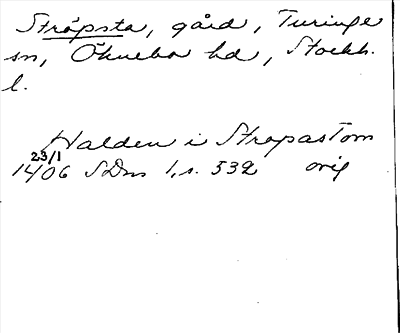 Stråpsta, gård, Turinge
sn, Öknebo hd, Stockh.
l.
Halden i Strapastom
23/1
1406 SDns 1, s. 532 orig